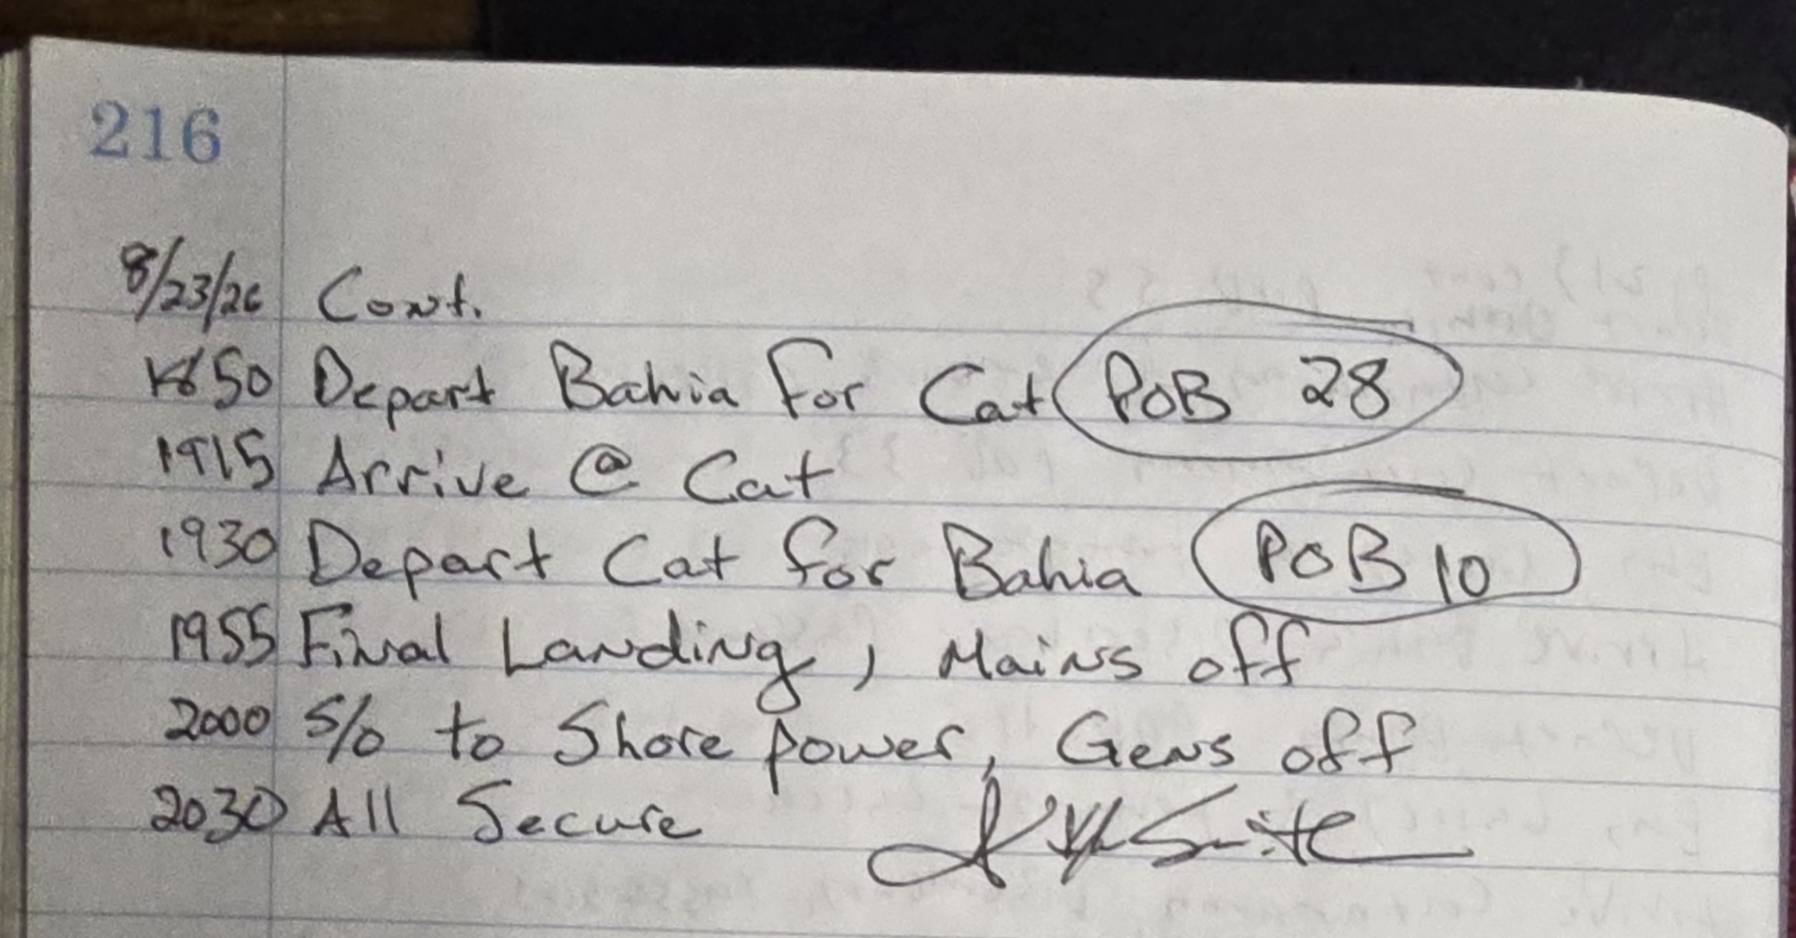 216
8/23/26 Cont.
1850 Depart Bahia for Cat POB 28
1915 Arrive @ Cat
1930 Depart Cat for Bahia POB 10
1955 Final Landing, Mains off
2000 S/O to Shore power, Gens off
2030 All Secure